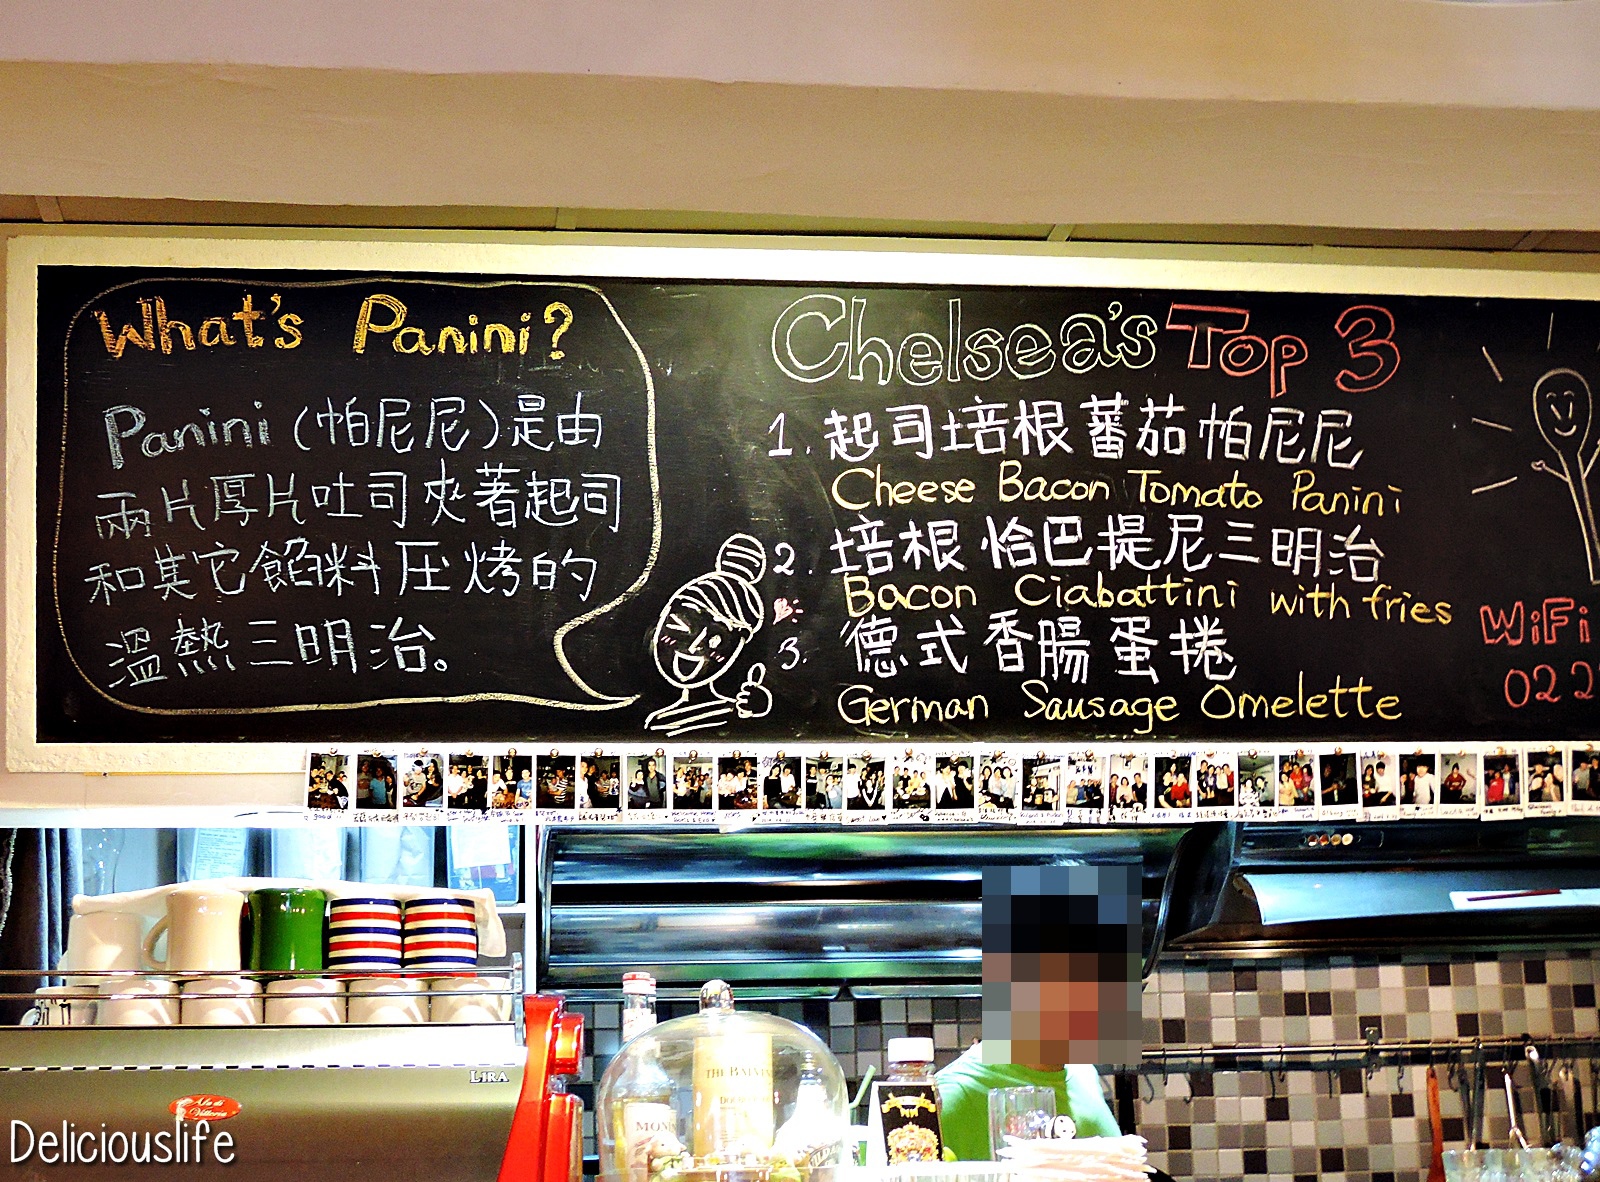 What's Panini?
Panini (帕尼尼)是由
兩片厚片吐司夾著起司
和其它餡料压烤的
溫熱三明治。
Chelsea's Top 3
1. 起司培根蕃茄帕尼尼
Cheese Bacon Tomato Panini
2. 培根恰巴提尼三明治
Bacon Ciabattini with fries
3. 德式香腸蛋捲
German Sausage Omelette
WiFi
022
LIRA
THE BALVENIE
Deliciouslife